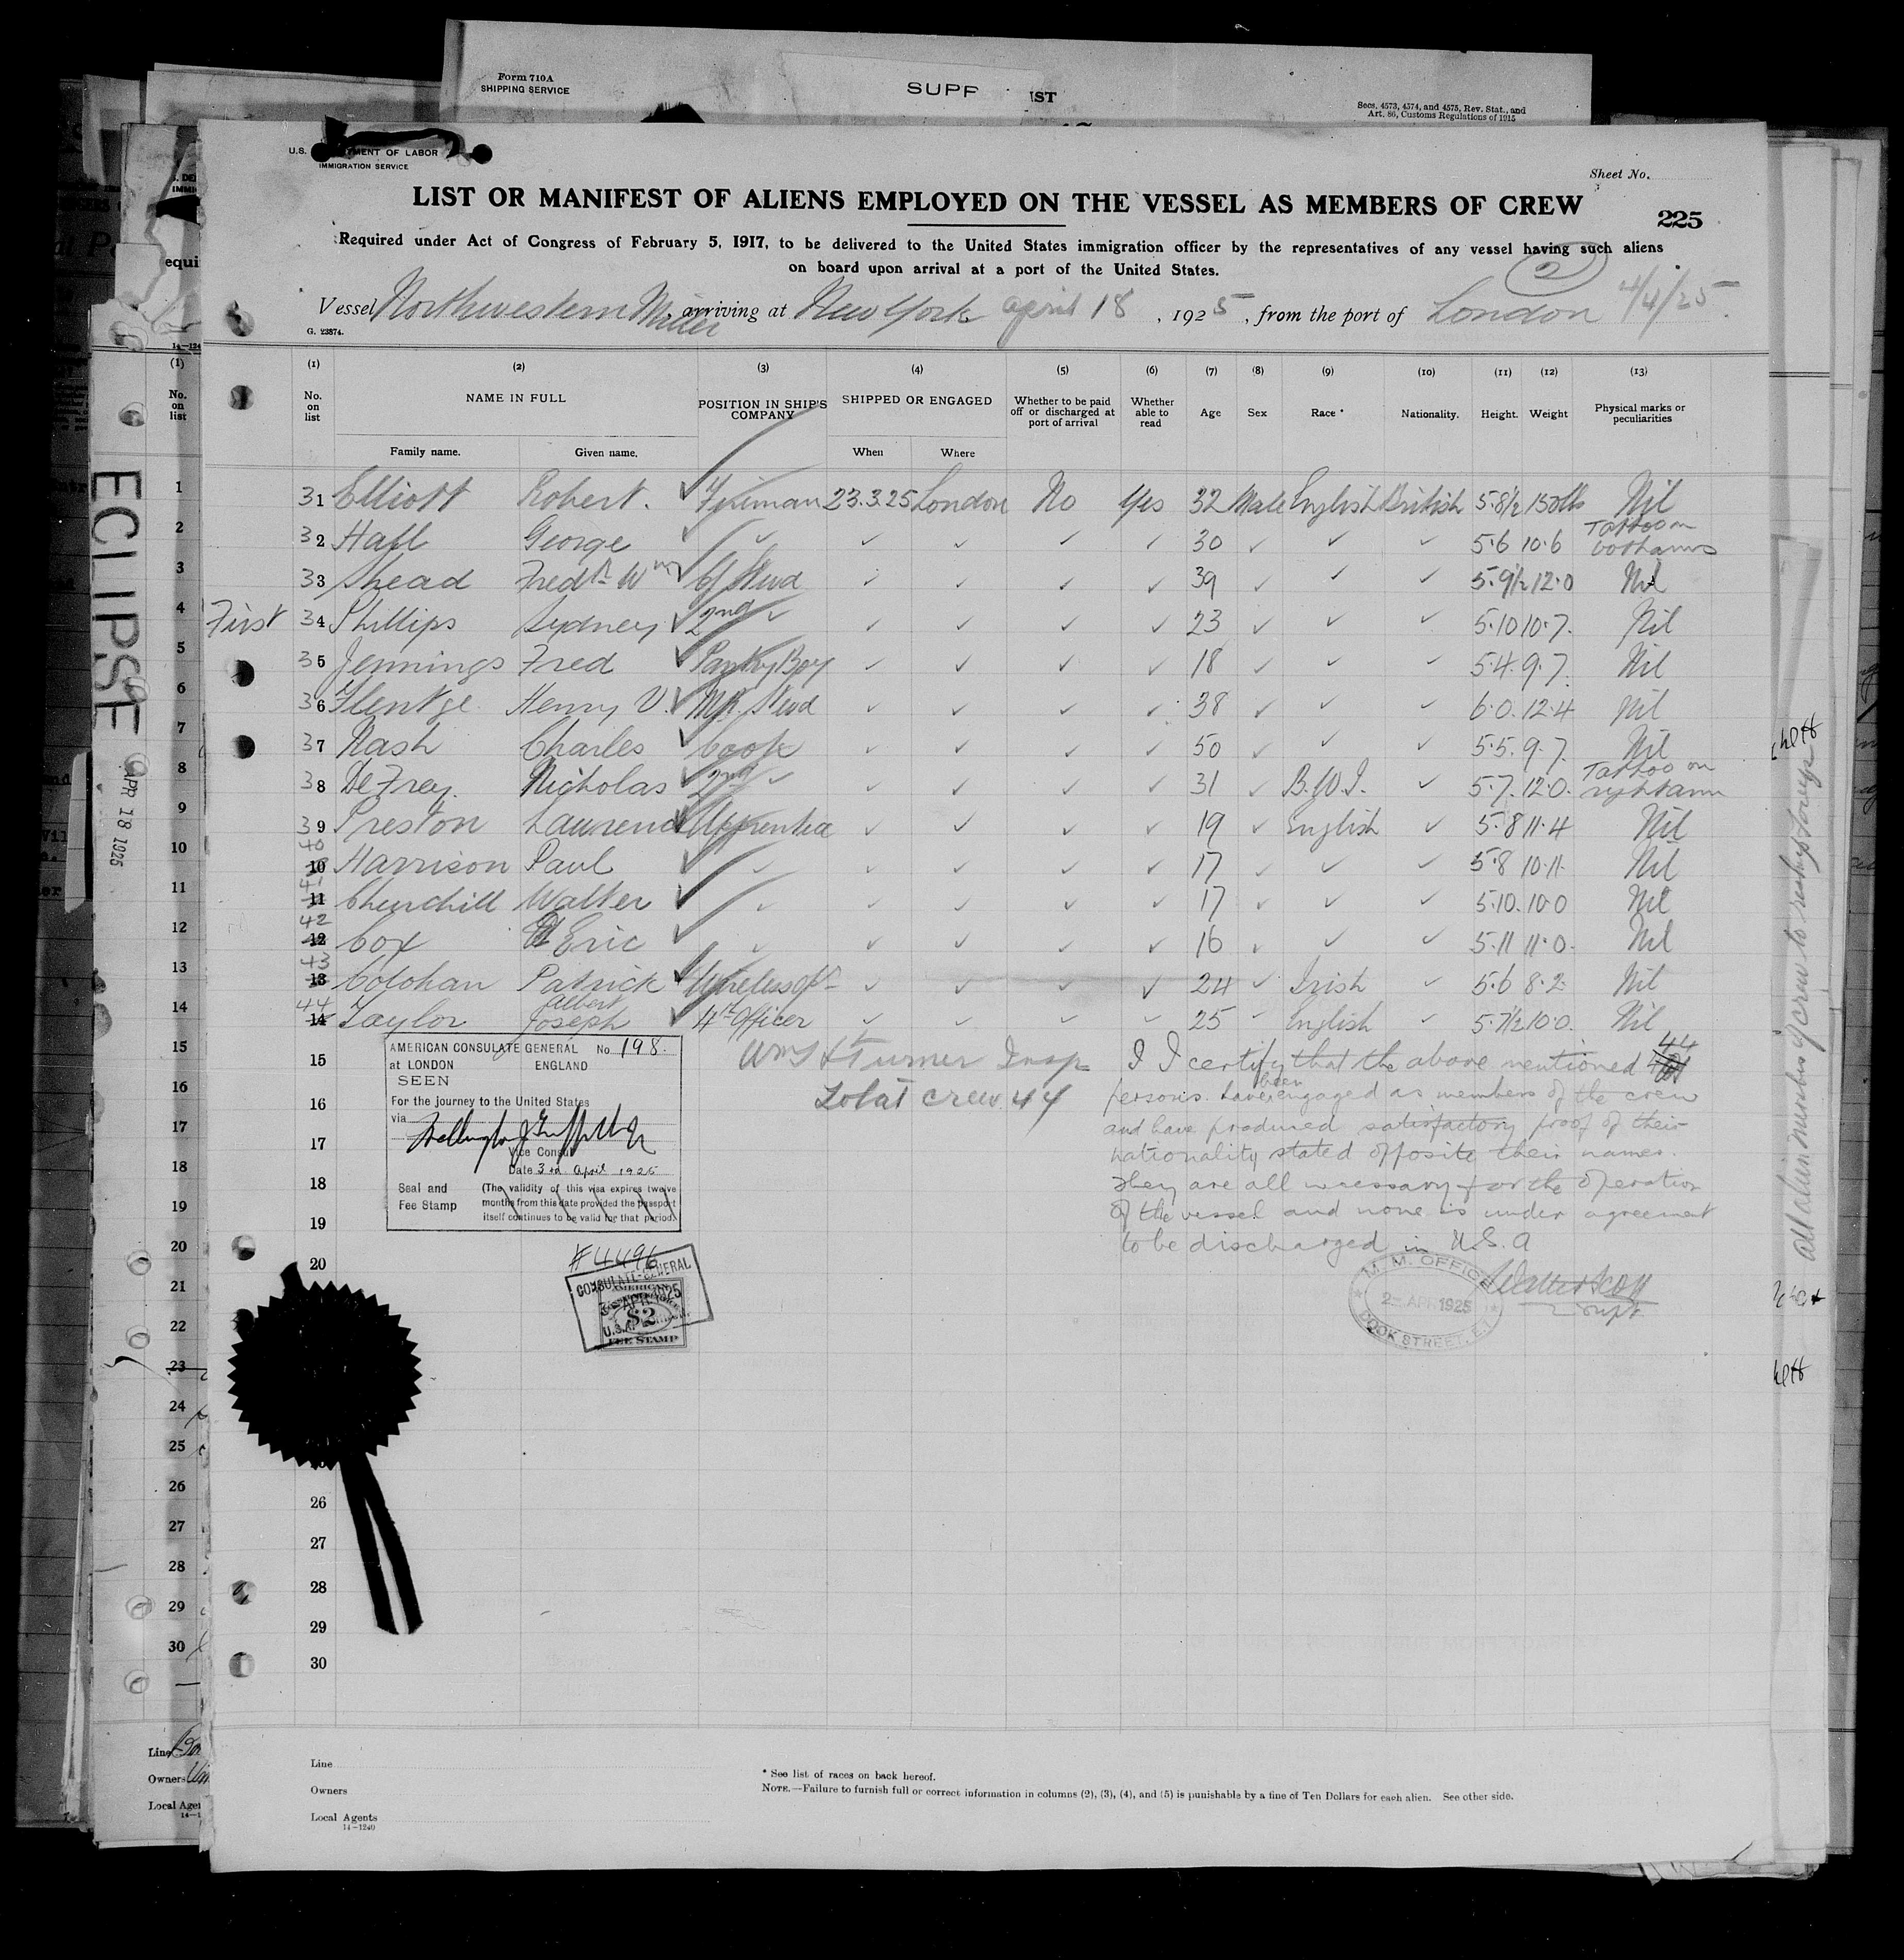 Form 710A
SHIPPING SERVICE
SUPP IST
Secs. 4573, 4574, and 4575, Rev. Stat., and
Art. 86, Customs Regulations of 1915
U.S. MENT OF LABOR
IMMIGRATION SERVICE
Sheet No.
LIST OR MANIFEST OF ALIENS EMPLOYED ON THE VESSEL AS MEMBERS OF CREW
225
Required under Act of Congress of February 5, 1917, to be delivered to the United States immigration officer by the representatives of any vessel having such aliens
on board upon arrival at a port of the United States.
2
Vessel Northwestern Miller, arriving at New York april 18, 1925, from the port of London 4/4/25.
G. 23874.
(1) (2) (3) (4) (5) (6) (7) (8) (9) (10) (11) (12) (13)
No. on list NAME IN FULL POSITION IN SHIP'S COMPANY SHIPPED OR ENGAGED Whether to be paid off or discharged at port of arrival Whether able to read Age Sex Race * Nationality. Height. Weight Physical marks or peculiarities
Family name. Given name. When Where
31 Elliott Robert. ✓ Fireman 23.3.25 London No Yes 32 Male English British 5.8½ 150lbs Nil
32 Hall George ✓ ✓ ✓ ✓ ✓ ✓ 30 ✓ ✓ ✓ 5.6 10.6 Tattoo on both arms
33 Shead Fredk Wm ✓ Cf Stwd ✓ ✓ ✓ ✓ 39 ✓ ✓ ✓ 5.9½ 12.0 Nil
First 34 Phillips Sydney ✓ 2nd ✓ ✓ ✓ ✓ ✓ 23 ✓ ✓ ✓ 5.10 10.7. Nil
35 Jennings Fred ✓ Pantry Boy ✓ ✓ ✓ ✓ 18 ✓ ✓ ✓ 5.4. 9.7. Nil
36 Flentge Henry V. ✓ M.R. Stwd ✓ ✓ ✓ ✓ 38 ✓ ✓ ✓ 6.0. 12.4 Nil
37 Nash Charles ✓ Cook ✓ ✓ ✓ ✓ 50 ✓ ✓ ✓ 5.5. 9.7. Nil
38 De Frey. Nicholas ✓ 2nd ✓ ✓ ✓ ✓ ✓ 31 ✓ B.W.I. ✓ 5.7. 12.0. Tattoo on right arm
39 Preston Laurence ✓ Apprentice ✓ ✓ ✓ ✓ 19 ✓ English ✓ 5.8 11.4 Nil
40 Harrison Paul ✓ ✓ ✓ ✓ ✓ ✓ 17 ✓ ✓ ✓ 5.8 10.11. Nil
41 Churchill Walter ✓ ✓ ✓ ✓ ✓ ✓ 17 ✓ ✓ ✓ 5.10. 10.0 Nil
42 Cox Eric ✓ ✓ ✓ ✓ ✓ ✓ 16 ✓ ✓ ✓ 5.11 11.0. Nil
43 Colohan Patrick ✓ Wireless Opr ✓ ✓ ✓ ✓ 24 ✓ Irish ✓ 5.6 8.2. Nil
44 Taylor Albert Joseph ✓ 4th Officer ✓ ✓ ✓ ✓ 25 ✓ English ✓ 5.7½ 10.0. Nil
AMERICAN CONSULATE GENERAL No 198.
at LONDON ENGLAND
SEEN
For the journey to the United States
via
Vice Consul
Date 3rd April 1925
Seal and Fee Stamp
(The validity of this visa expires twelve
months from this date provided the passport
itself continues to be valid for that period)
Turner Insp
Total crew 44
I I certify that the above mentioned 44
persons have been engaged as members of the crew
and have produced satisfactory proof of their
nationality stated opposite their names.
They are all necessary for the operation
of the vessel and none is under agreement
to be discharged in U.S.A
Walter Scott
Supt
M. M. OFFICE
2- APR 1925
DOCK STREET. E.1
#4496
CONSULATE-GENERAL
AMERICAN
3- APR 1925
$2
FEE STAMP
15
16
17
18
19
20
26
27
28
29
30
Line
Owners
Local Agents
14-1240
* See list of races on back hereof.
NOTE.—Failure to furnish full or correct information in columns (2), (3), (4), and (5) is punishable by a fine of Ten Dollars for each alien. See other side.
ECLIPSE
APR 18 1925
(1)
No. on list
1
2
3
4
5
6
7
8
9
10
11
12
13
14
15
16
17
18
19
20
21
22
23
24
25
26
27
28
29
30
Line
Owners
Local Agen
all alien members of crew to reship foreign